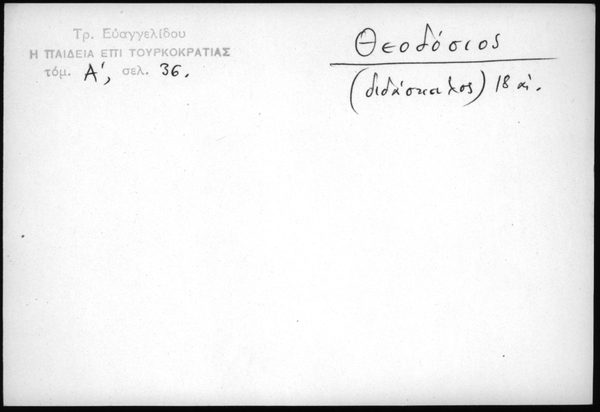 Τρ. Εὐαγγελίδου
Η ΠΑΙΔΕΙΑ ΕΠΙ ΤΟΥΡΚΟΚΡΑΤΙΑΣ
τόμ. Α', σελ. 36.
Θεοδόσιος
(διδάσκαλος) 18 αἰ.